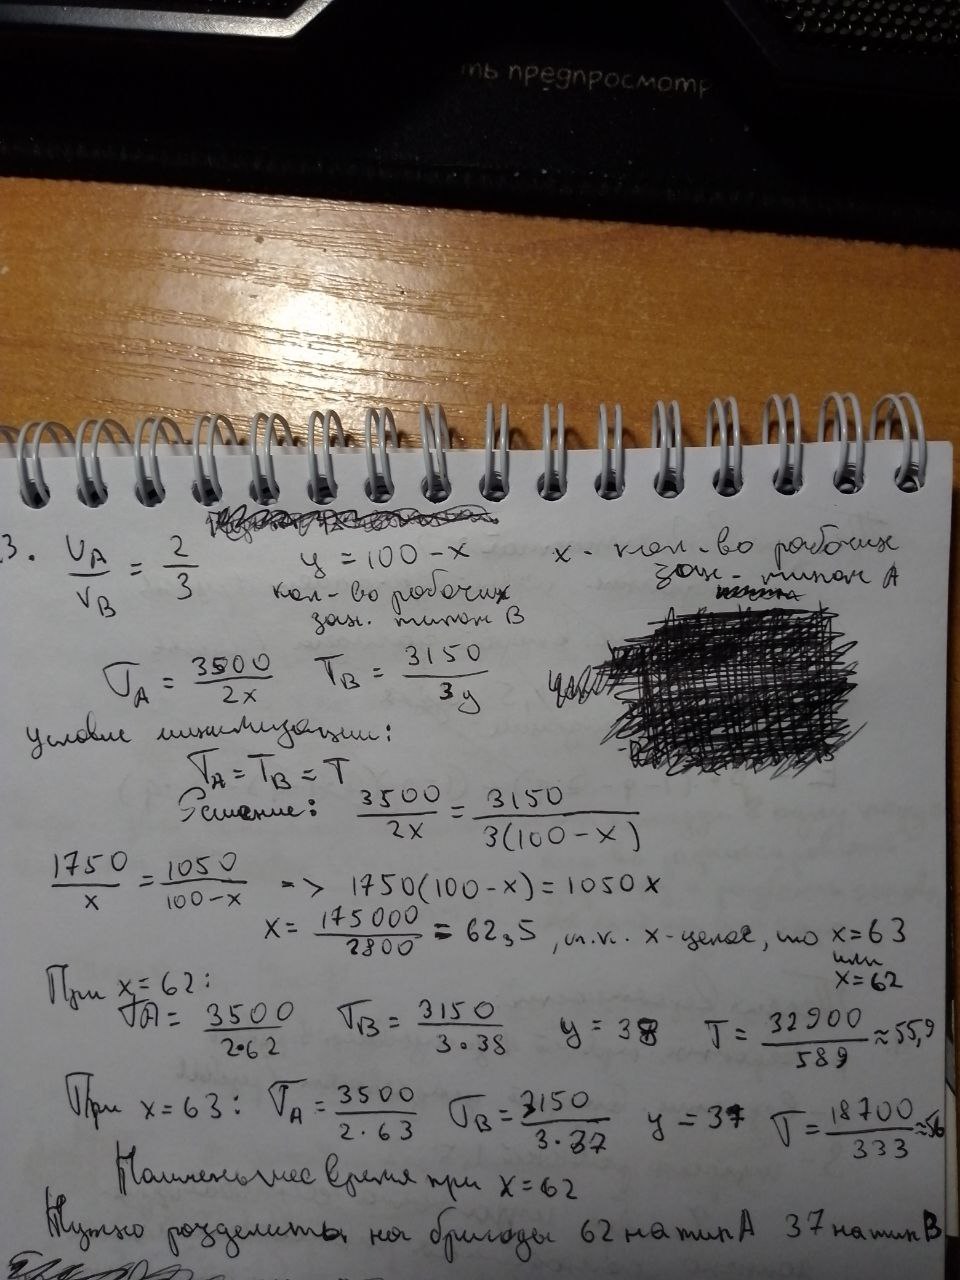 ть предпросмотр
3. VA/VB = 2/3 y = 100 - x x - кол-во рабочих
зан. типом A
кол-во рабочих
зан. типом B
TA = 3500/2x TB = 3150/3y
Условие минимизации:
TA = TB = T
Решение: 3500/2x = 3150/3(100 - x)
1750/x = 1050/100-x -> 1750(100-x) = 1050x
x = 175000/2800 = 62,5, т.к. x-целое, то x=63
или
x=62
При x=62:
TA = 3500/2·62 TB = 3150/3·38 y = 38 T = 32900/589 ≈ 55,9
При x=63: TA = 3500/2·63 TB = 3150/3·37 y = 37 T = 18700/333 ≈ 56
Наименьшее время при x=62
Нужно разделить на бригады 62 на тип A 37 на тип B